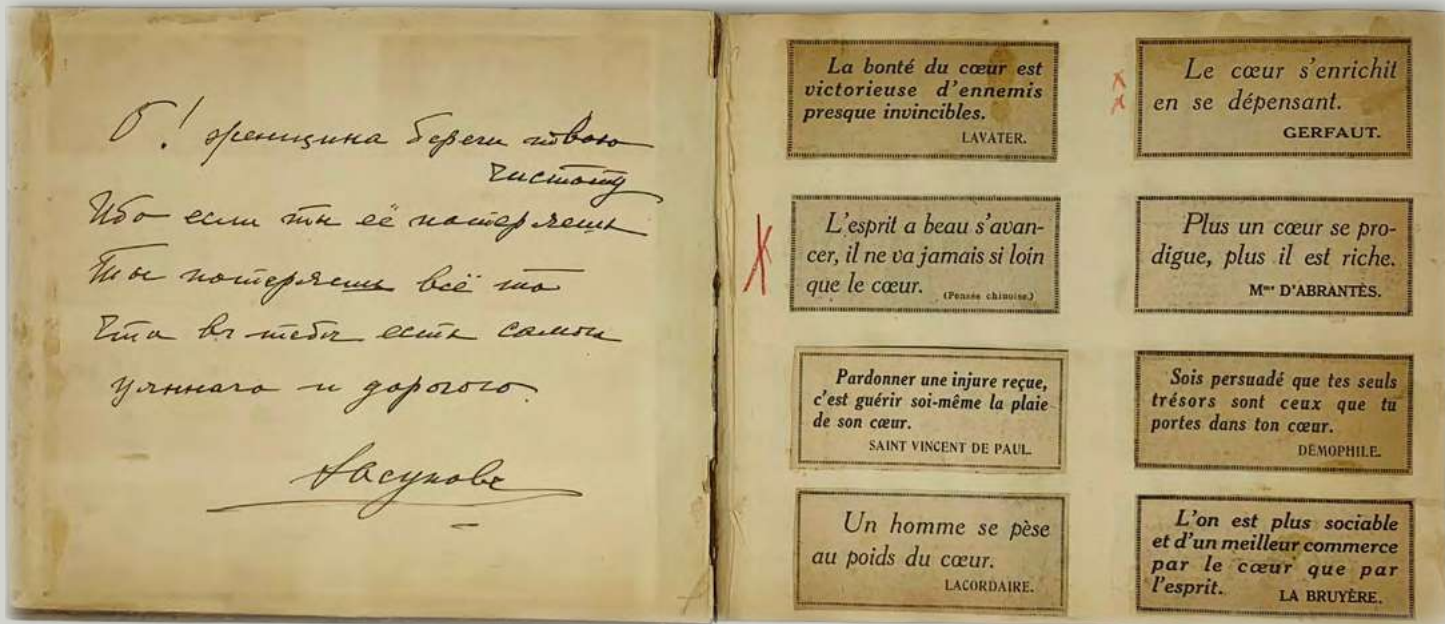 О! женщина береги твою
чистоту
Ибо если ты её потеряешь
Ты потеряешь всё то
Что въ тебѣ есть самаго
цѣннаго и дорогого.
La bonté du cœur est
victorieuse d'ennemis
presque invincibles.
LAVATER.
L'esprit a beau s'avan-
cer, il ne va jamais si loin
que le cœur.
(Pensée chinoise.)
Pardonner une injure reçue,
c'est guérir soi-même la plaie
de son cœur.
SAINT VINCENT DE PAUL.
Un homme se pèse
au poids du cœur.
LACORDAIRE.
Le cœur s'enrichit
en se dépensant.
GERFAUT.
Plus un cœur se pro-
digue, plus il est riche.
Mme D'ABRANTÈS.
Sois persuadé que tes seuls
trésors sont ceux que tu
portes dans ton cœur.
DÉMOPHILE.
L'on est plus sociable
et d'un meilleur commerce
par le cœur que par
l'esprit.
LA BRUYÈRE.